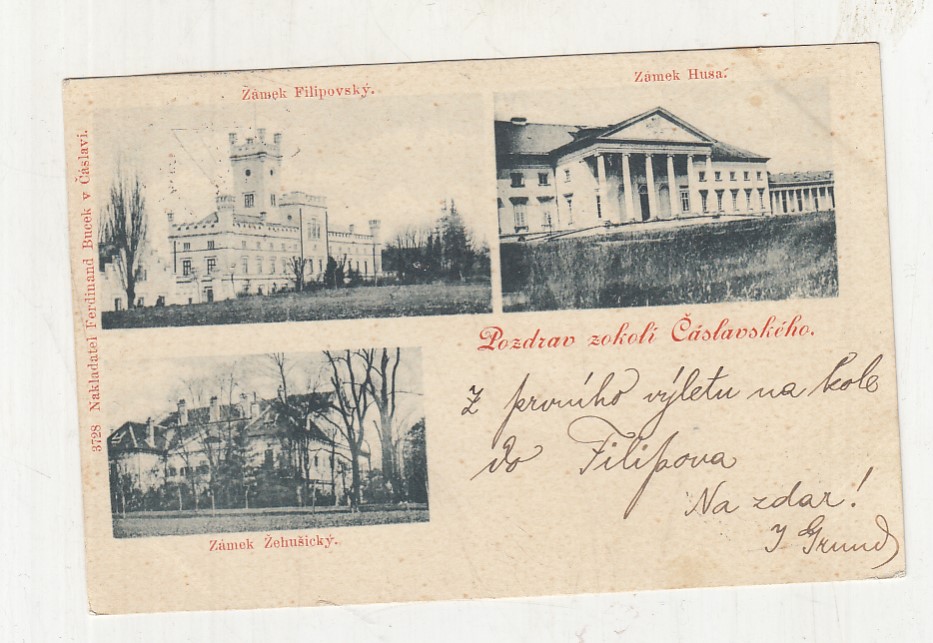 Zámek Filipovský.
Zámek Husa.
3728 Nakladatel Ferdinand Bucek v Čáslavi.
Pozdrav zokolí Čáslavského.
Z prvního výletu na kole
do Filipova
Na zdar!
J Grund
Zámek Žehušický.